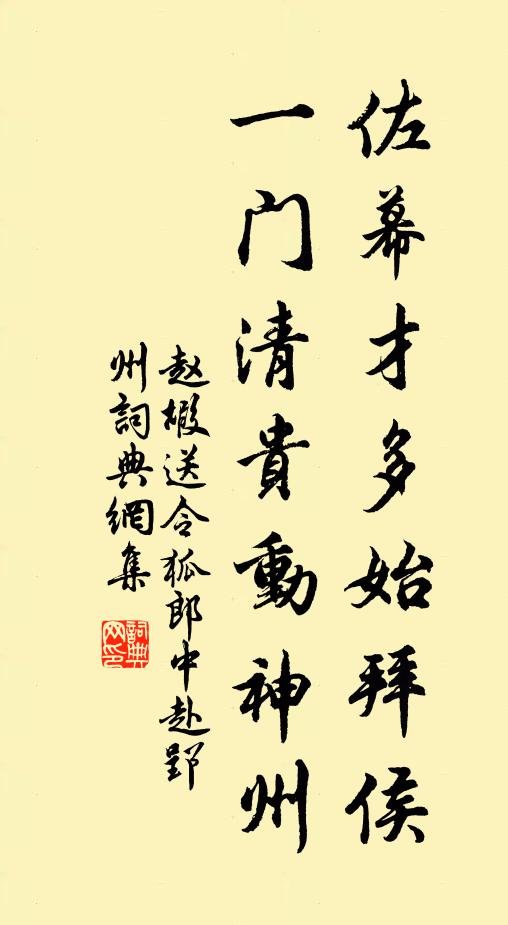 佐幕才多始拜侯
一门清貴動神州
赵嘏送令狐郎中赴郢
州詞典網集
詞典
网印